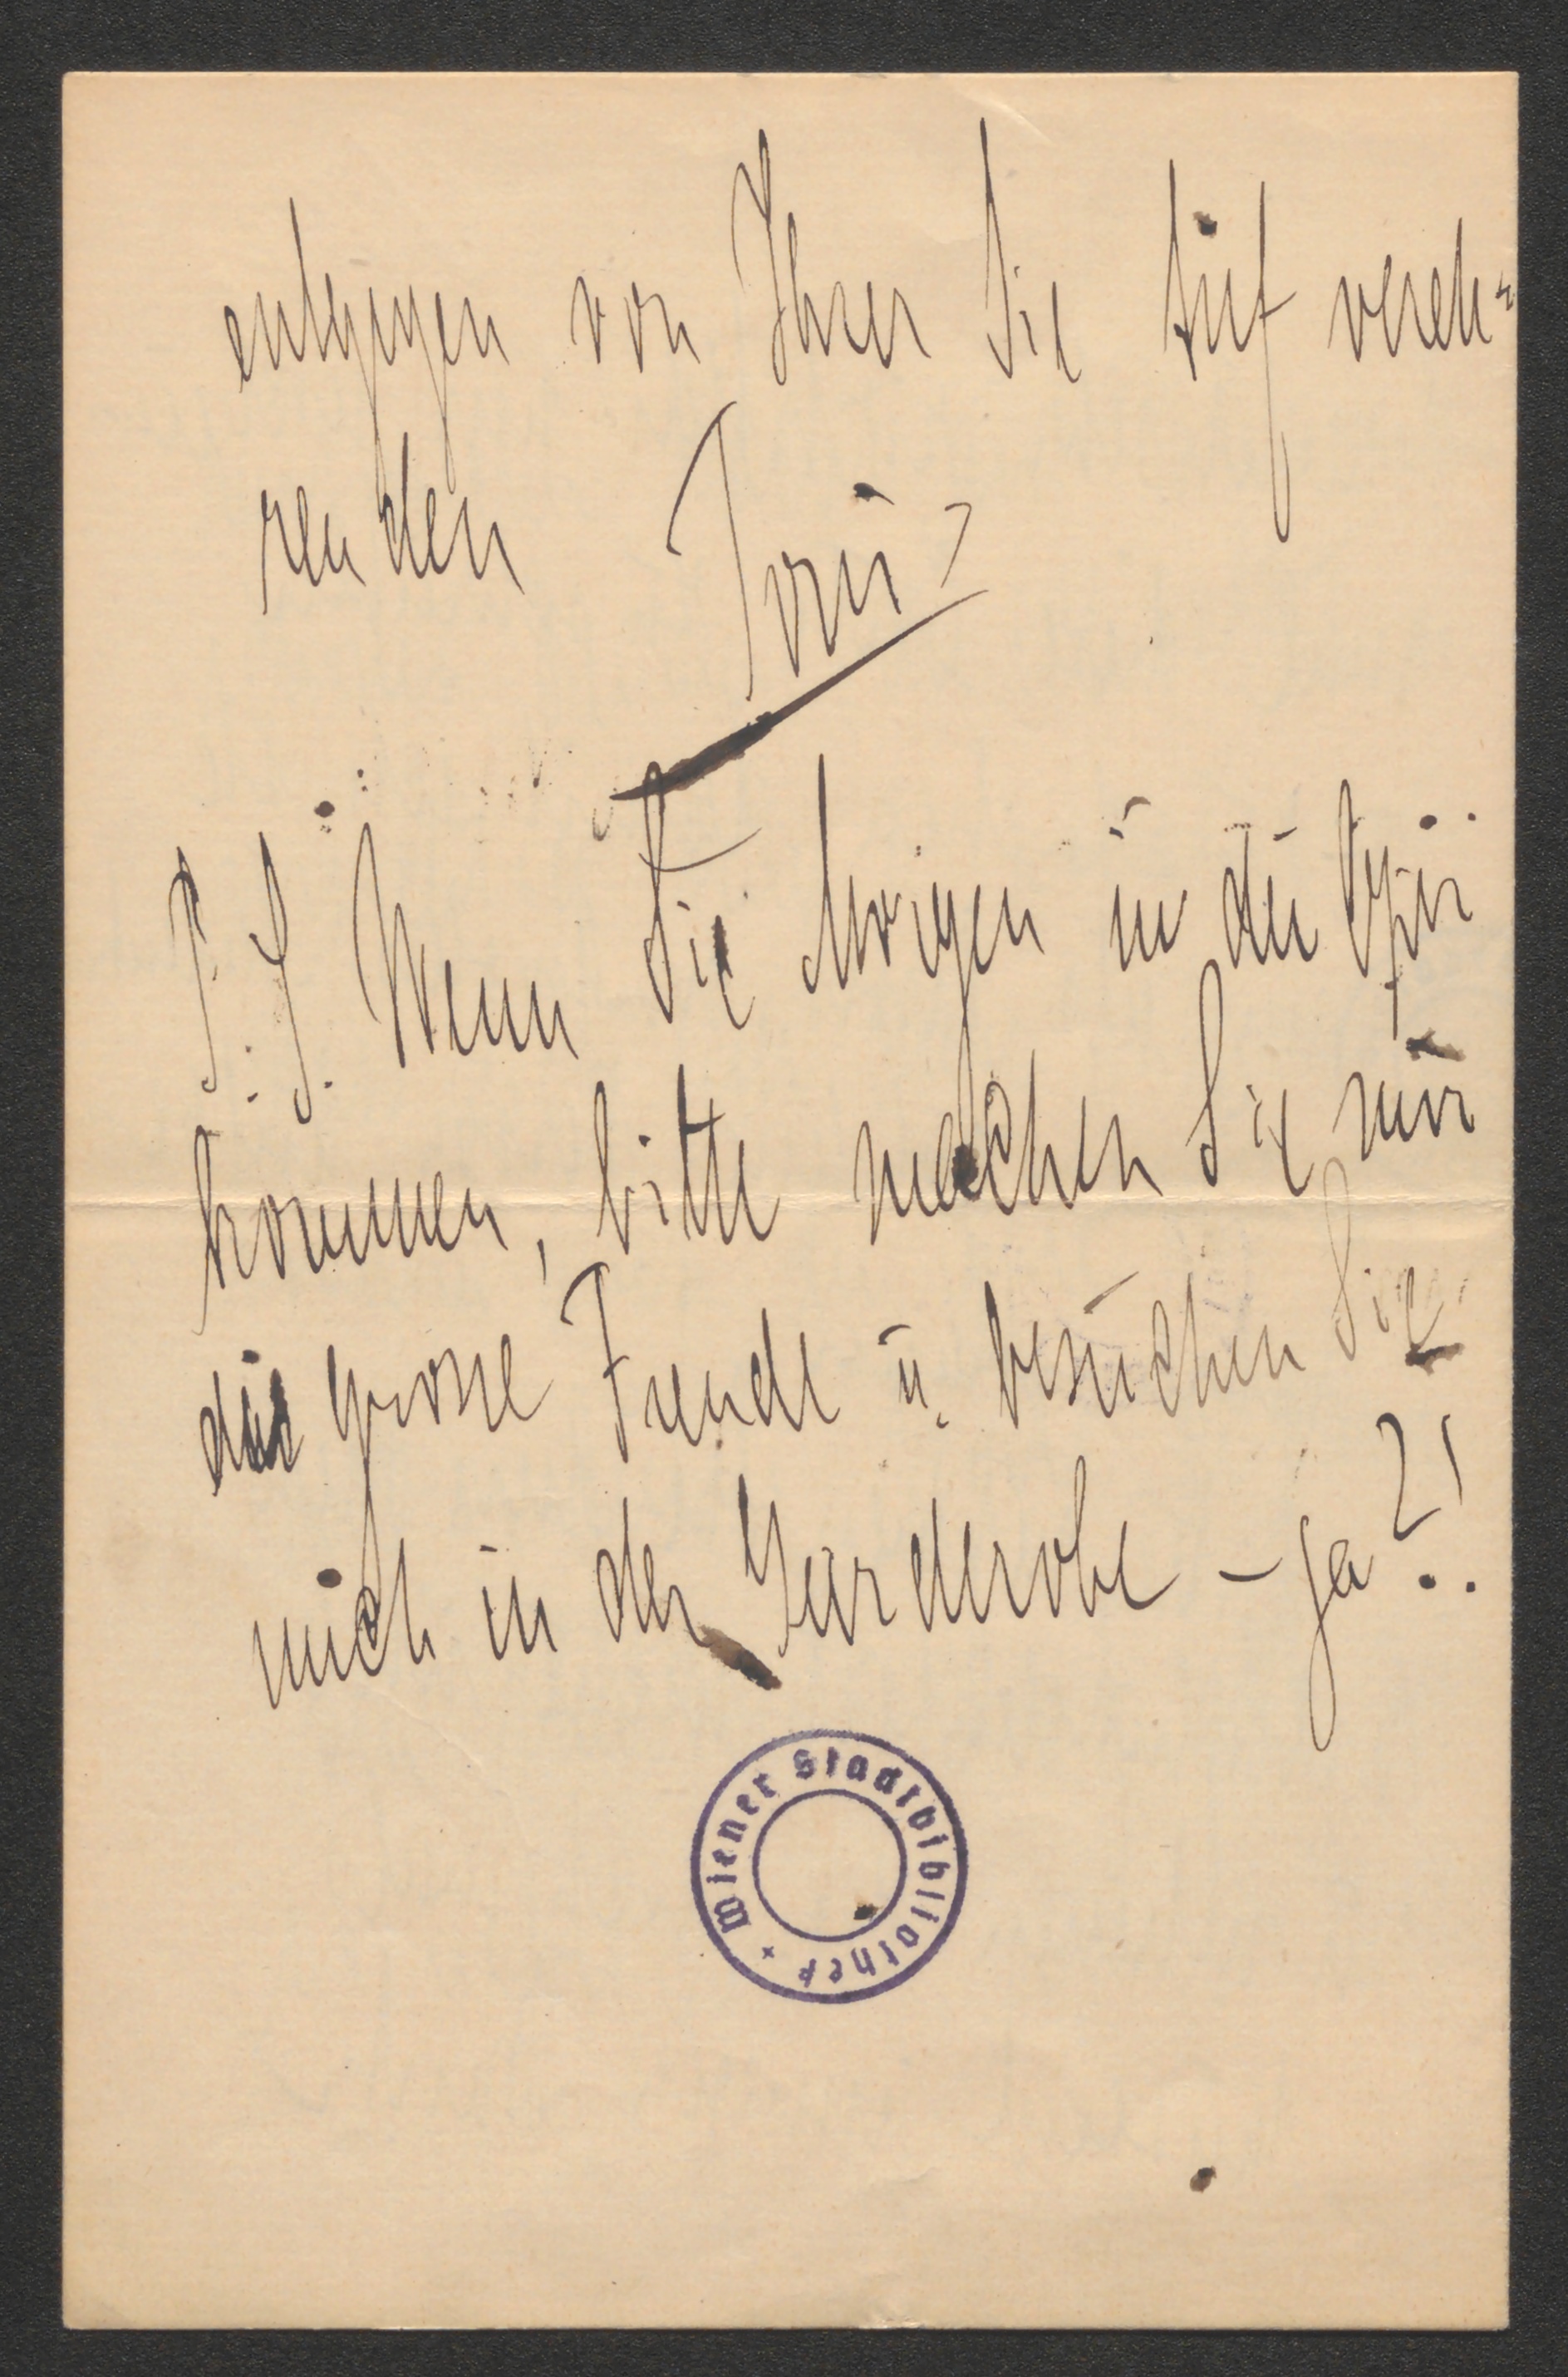 entgegen von Ihrer Sie tief vereh-
renden
P. S. Wenn Sie Morgen in die Oper
kommen, bitte machen Sie mir
die grosse Freude u. besuchen Sie
mich in der Garderobe – ja?!
Wiener Stadtbibliothek